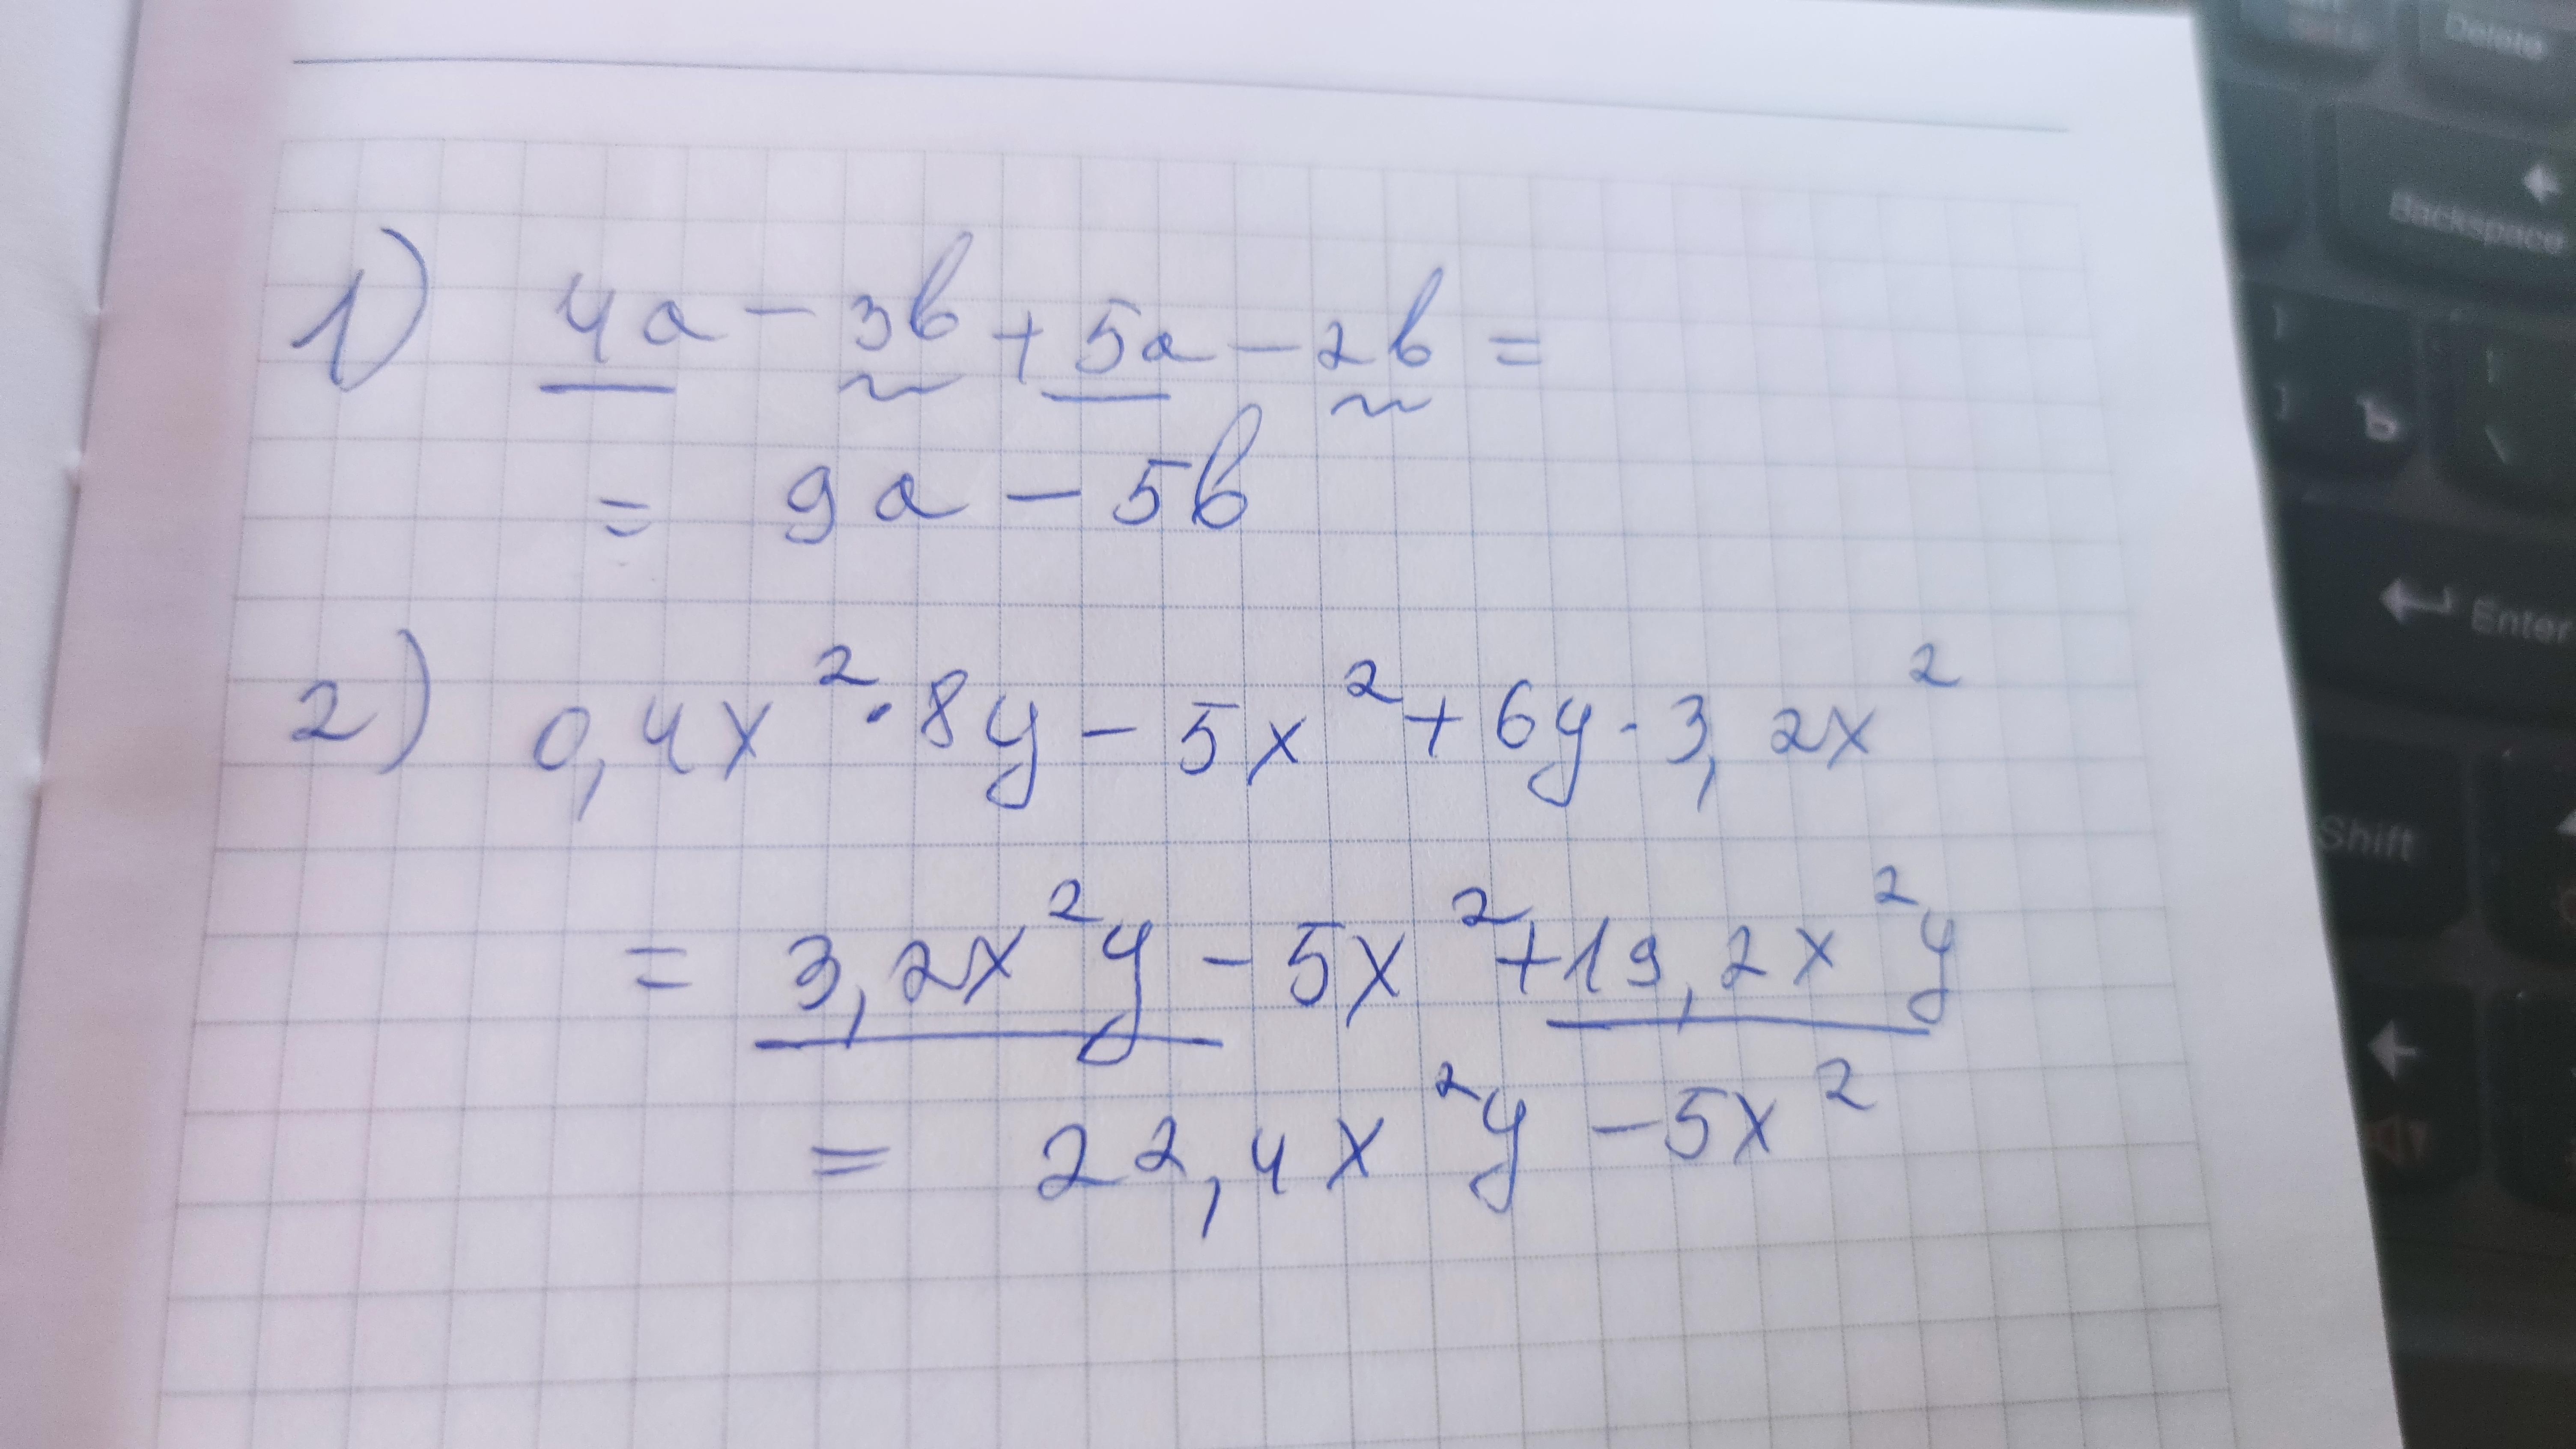 1) 4a - 3b + 5a - 2b =
= 9a - 5b
2) 0,4x² · 8y - 5x² + 6y · 3,2x²
= 3,2x²y - 5x² + 19,2x²y
= 22,4x²y - 5x²
Delete
Backspace
Ъ
\
Enter
Shift